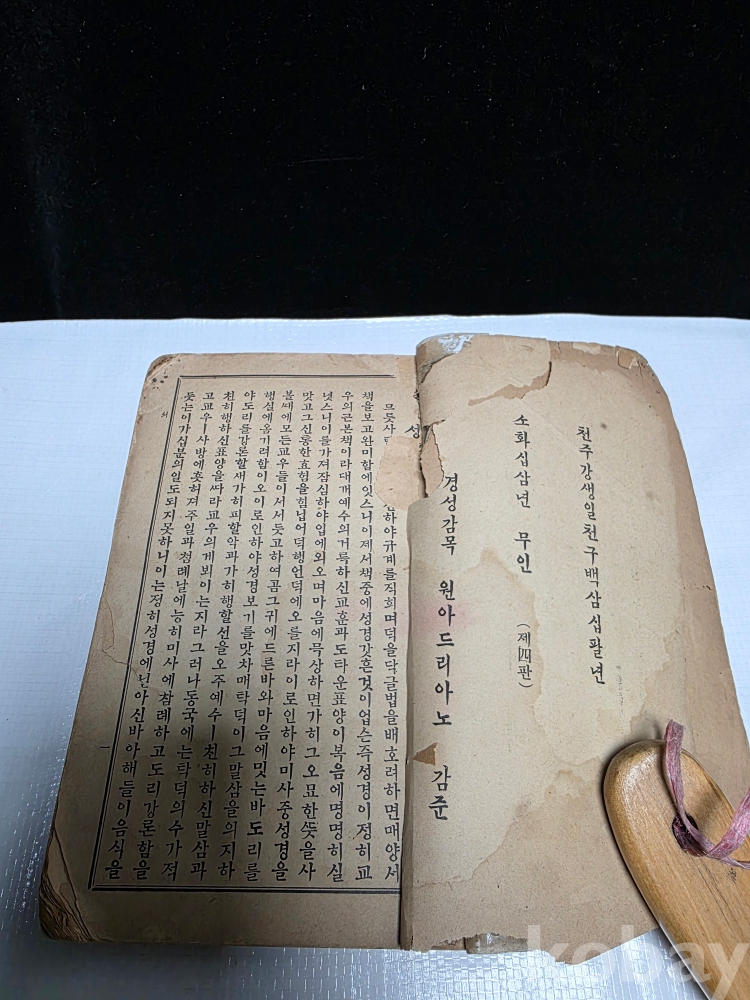 천주강생일천구백삼십팔년
소화십삼년 무인 (제四판)
경성감목 원아드리아노 감준
성
므릇사 하야규계를직희며덕을닥글법을배호려하면매양서
책을보고완미함에잇스니이제서책중에성경갓흔것이업슨주성경이정히교
우의근본책이라대개예수의거륵하신교훈과도타운표양이복음에명명히실
녓스니이를가져잠심하야입에외오며마음에묵상하면가히그오묘한뜻을사
맛고그신통한효험을힘닙어덕행언덕에오를지라이로인하야미사중성경을
볼때에모든교우들이서서듯고하여곰그귀에드른바와마음에밋는바도리를
행실에옴기려함이오이로인하야성경보기를맛차매탁덕이그말삼을의지하
야도리를강론할새가히피할악과가히행할선을오주예수ㅣ친히하신말삼과
친히행하신표양을싸라교우의게뵈이는지라그러나동국에는탁덕의수가적
고교우ㅣ사방에흣허져주일과첨례날에능히미사에참례하고도리강론함을
듯는이가십분의일도되지못하니이는정히성경에닐아신바아해들이음식을
서
一
kobay